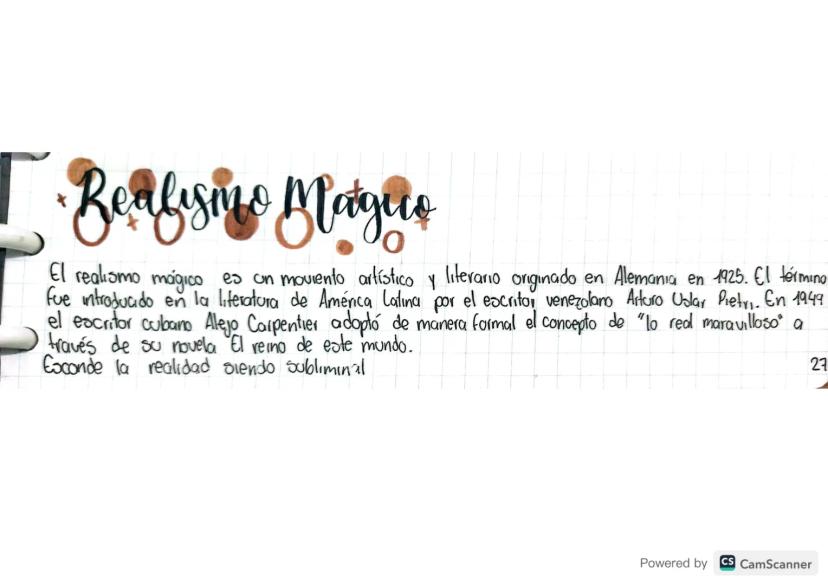 Realismo Mágico
El realismo mágico es un moviento artístico y literario originado en Alemania en 1925. El término
fue introducido en la literatura de América Latina por el escritor venezolano Arturo Uslar Pietri. En 1949
el escritor cubano Alejo Carpentier adoptó de manera formal el concepto de "lo real maravilloso" a
través de su novela El reino de este mundo.
Esconde la realidad siendo subliminal
27
Powered by CS CamScanner